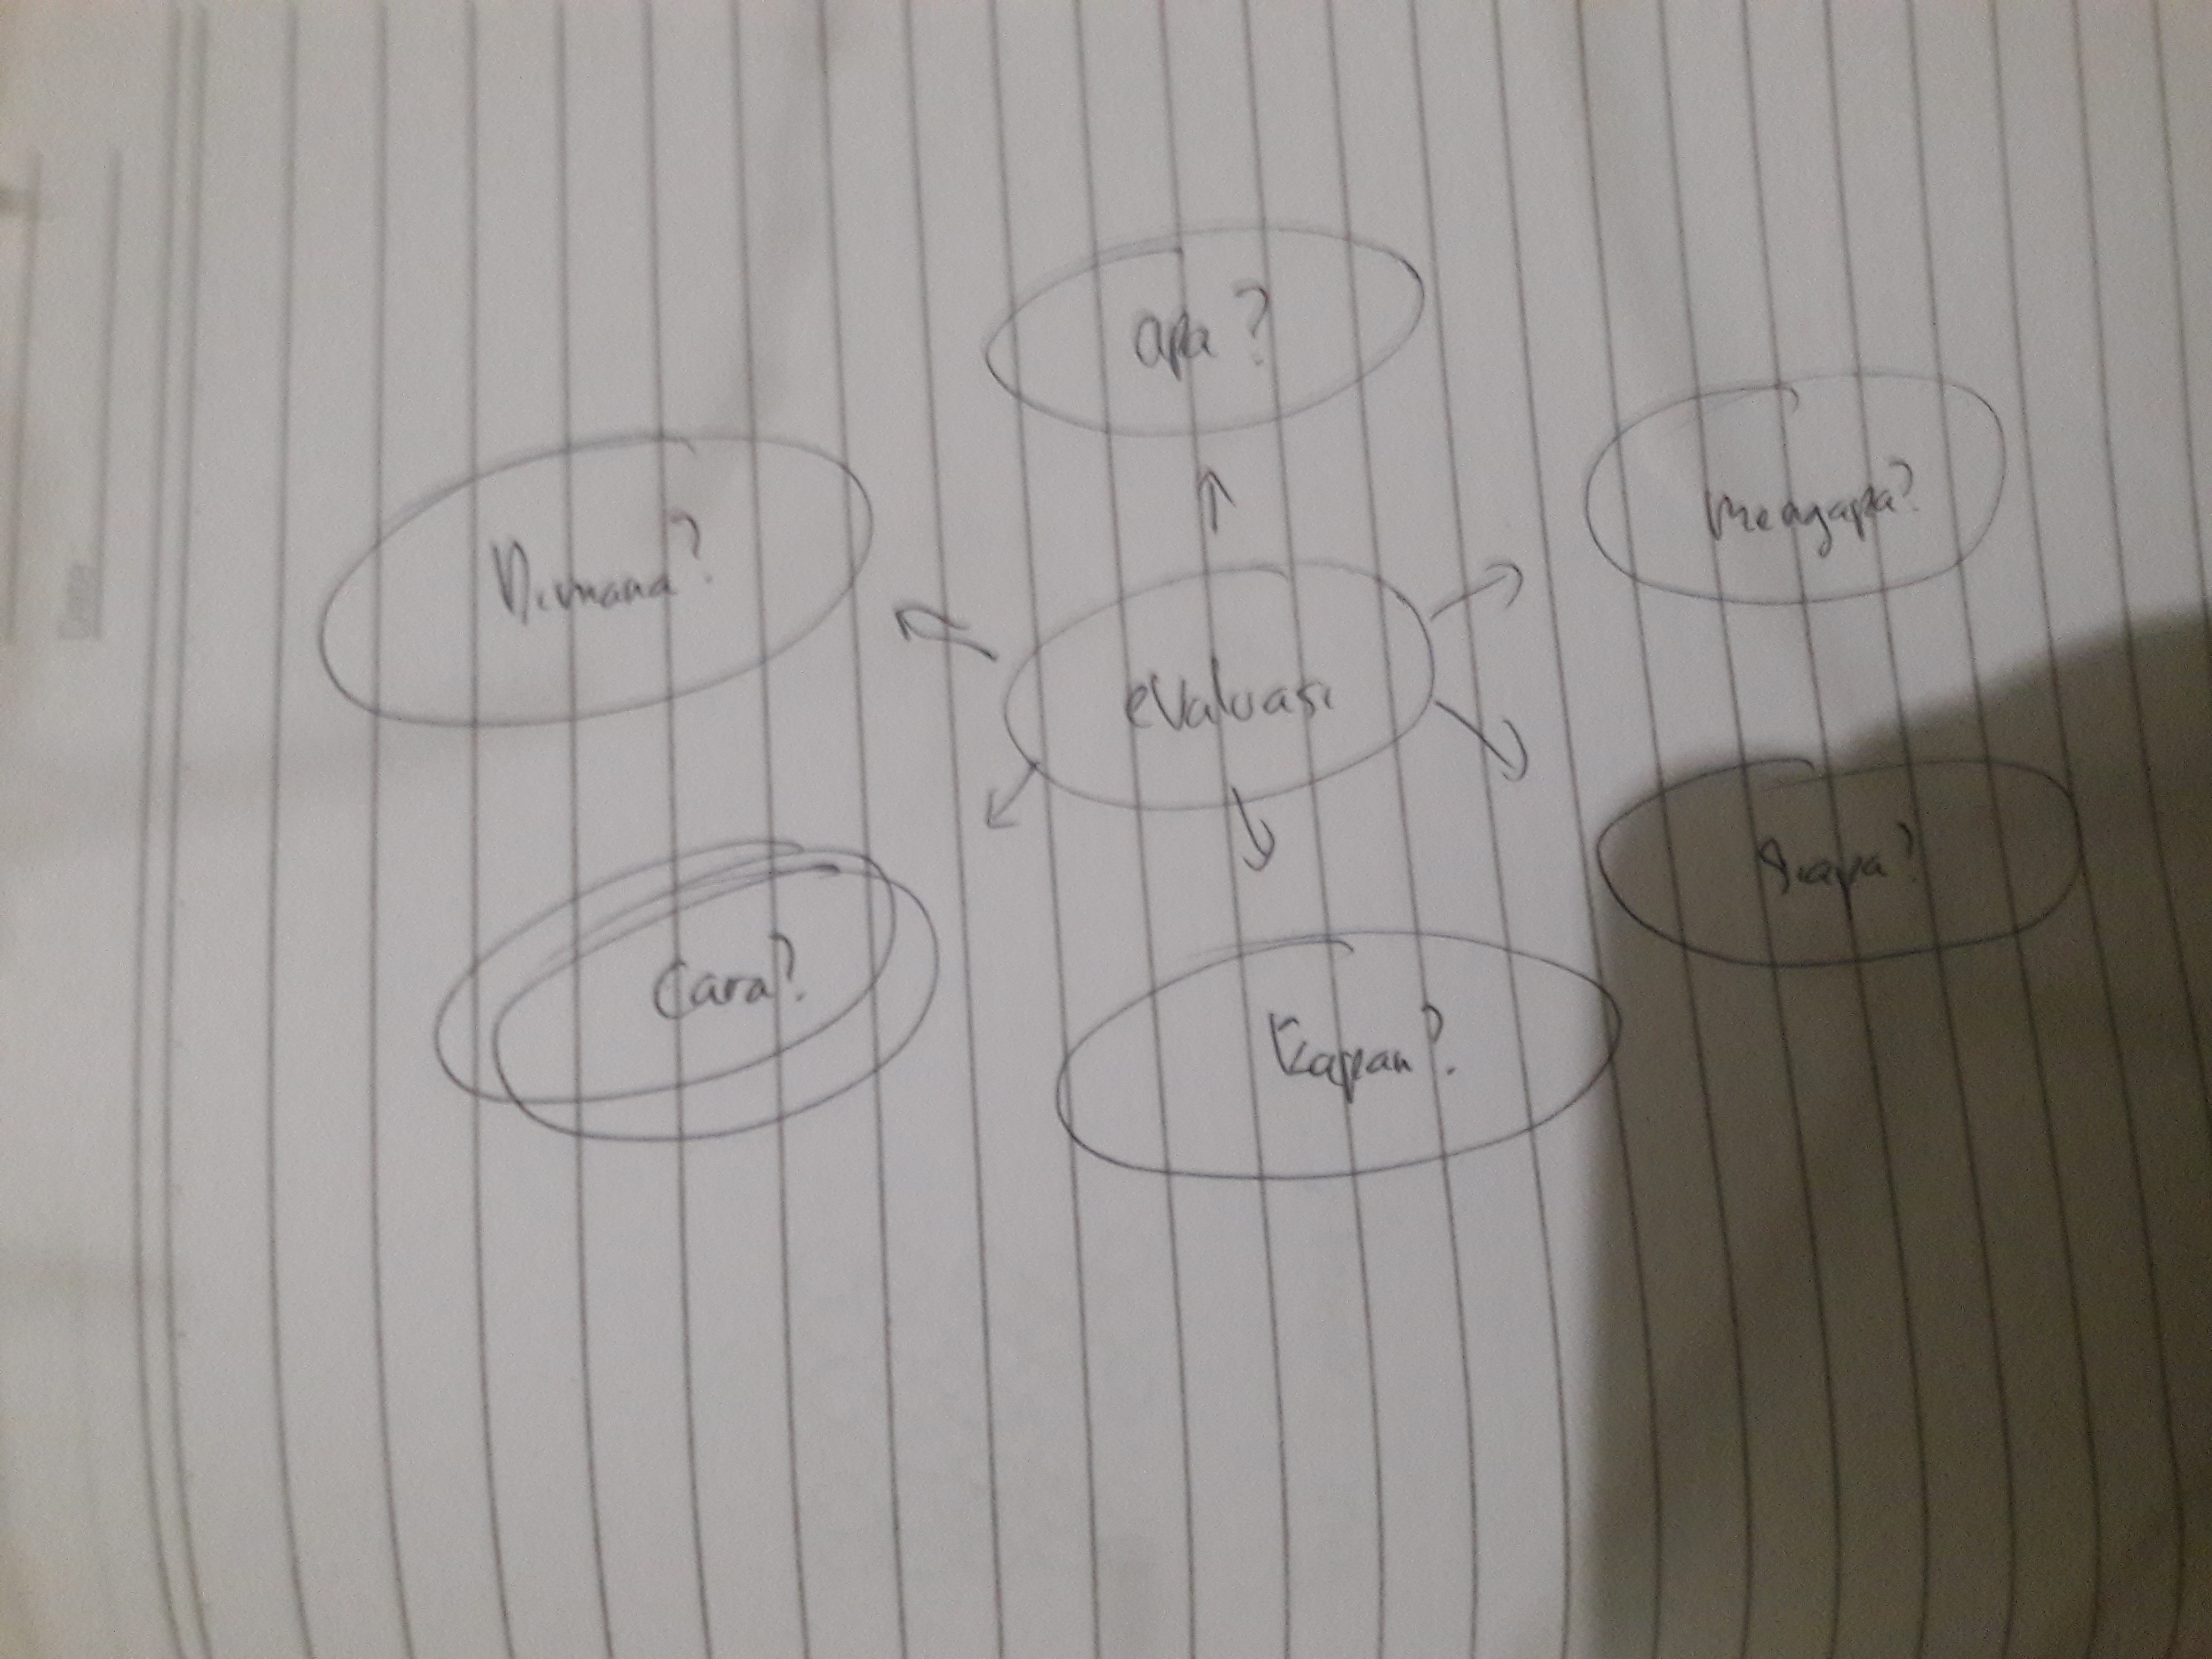 Date
apa?
Dimana?
mengapa?
evaluasi
Cara?
Siapa?
Kapan?